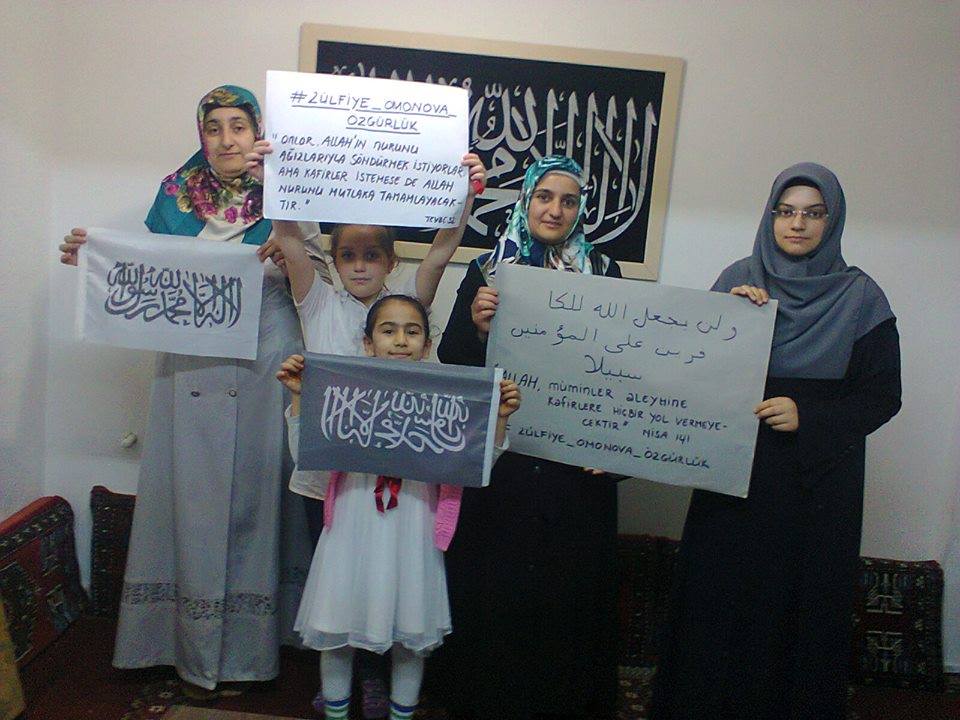 #ZÜLFİYE_OMONOVA_
ÖZGÜRLÜK
"ONLAR, ALLAH'IN NURUNU
AĞIZLARIYLA SÖNDÜRMEK İSTİYORLAR
AMA KAFİRLER İSTEMESE DE ALLAH
NURUNU MUTLAKA TAMAMLAYACAK-
TIR."
TEVBE 32
لا إله إلا الله محمد رسول الله
لا إله إلا الله محمد رسول الله
لا إله إلا الله محمد
ولن يجعل الله للكا
فرين على المؤمنين
سبيلا
"ALLAH, müminler aleyhine
kafirlere hiçbir yol vermeye-
cektir" NİSA 141
# ZÜLFİYE_OMONOVA_ÖZGÜRLÜK